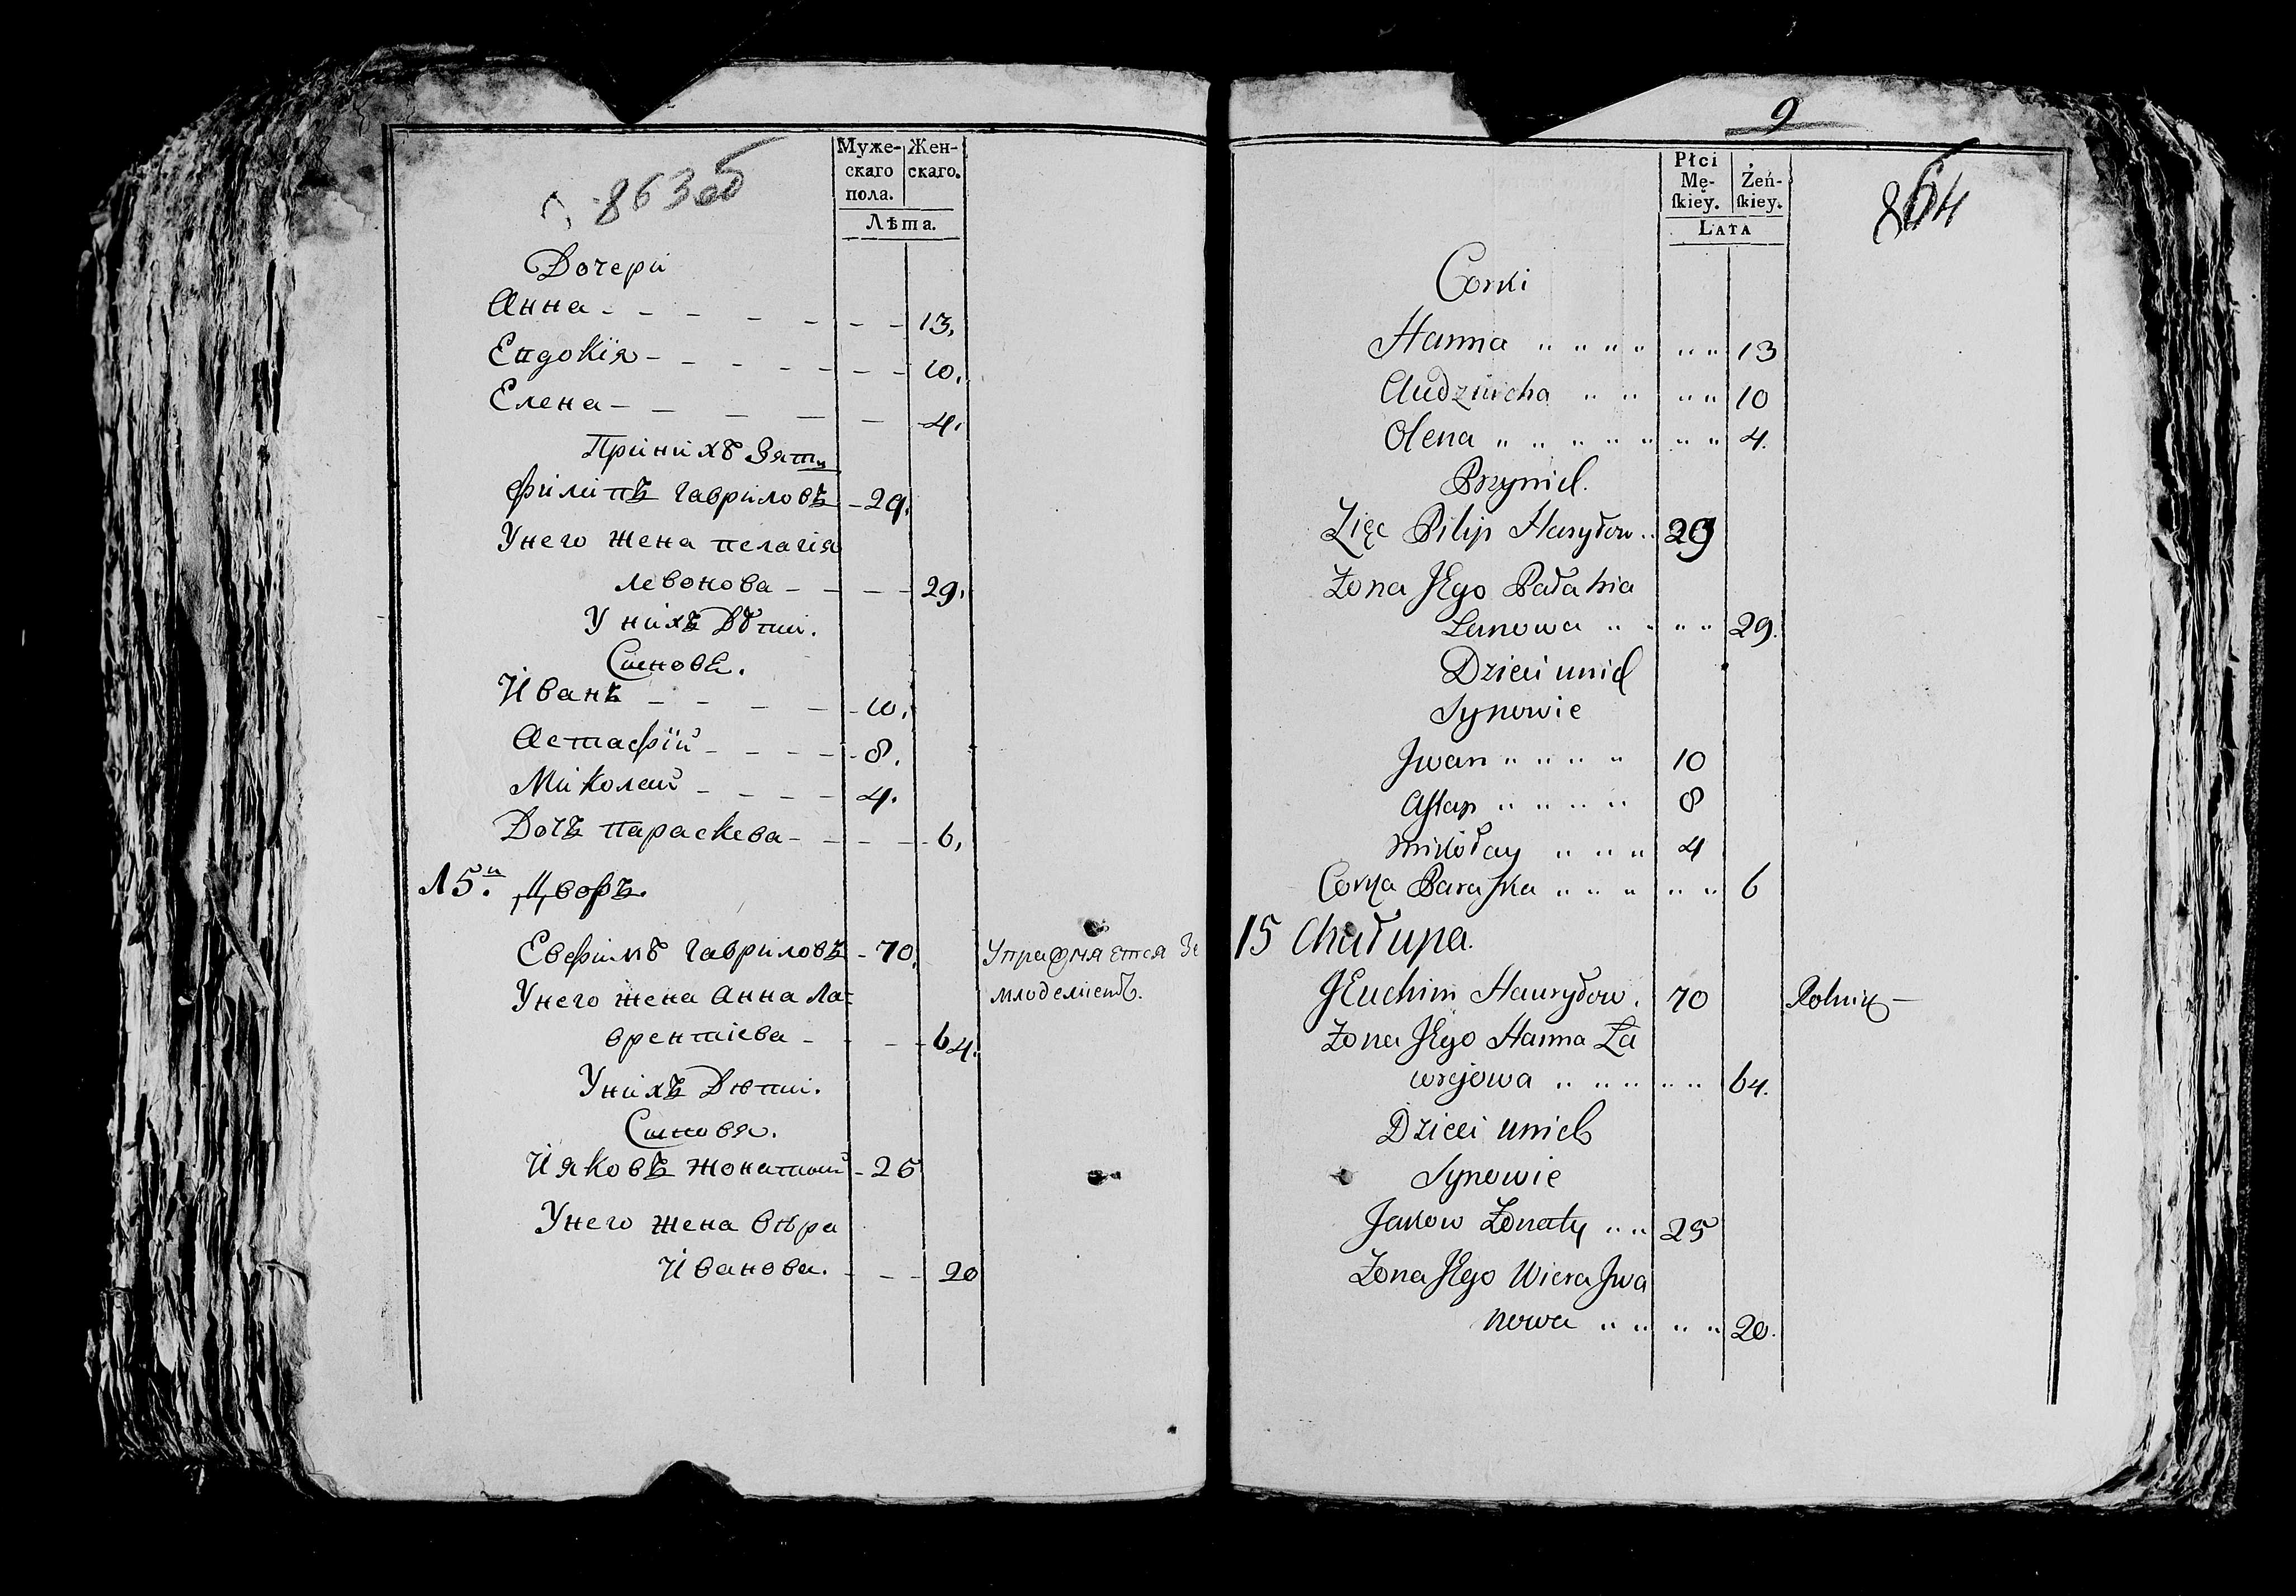 863 об
Муже- Жен-
скаго скаго.
пола.
Лѣта.
Дочери
Анна - - - - - - - 13,
Евдокія - - - - - - - 10.
Елена - - - - - 4.
При нихъ Зяти
филипъ гавриловъ - 29.
У него жена пелагія
левонова - - - - 29.
У нихъ Дѣти.
Сынове.
Иванъ - - - - - 10.
Астафій - - - - - 8.
Миколай - - - - 4.
Дочъ параскева - - - - 6,
15й. Дворъ.
Евфимъ гавриловъ - 70. Упражняется Зе
У него жена Анна Ла= младелиемъ.
врентиева - - - 64.
У нихъ Дѣти.
Сыновя.
Йяковъ жонатый - 25
У него жена вѣра
Иванова. - - - 20
9
864
Płci
Mę- Żeń-
ſkiey. ſkiey.
LATA
Corki
Hanna " " " " " " 13
Audziucha " " " " 10
Olena " " " " " " " 4.
Przynich.
Zięc Pilip Hasryłow.. 29
Żona JEgo Pałahia
Lanowa " " " " 29.
Dzieci unich
Synowie
Jwan " " " " " 10
Aſtap " " " " " 8
Mikołay " " " 4
Corka Paraſka " " " " " 6
15 Chałupa.
JEuchim Hawryłow. 70 Rolnik —
Żona JEgo Hanna Ła
wrejowa " " " " " 64.
Dzieci unich
Synowie
Jakow Żonaty " " 25
Żona JEgo Wiera Jwa
nowa " " " " 20.